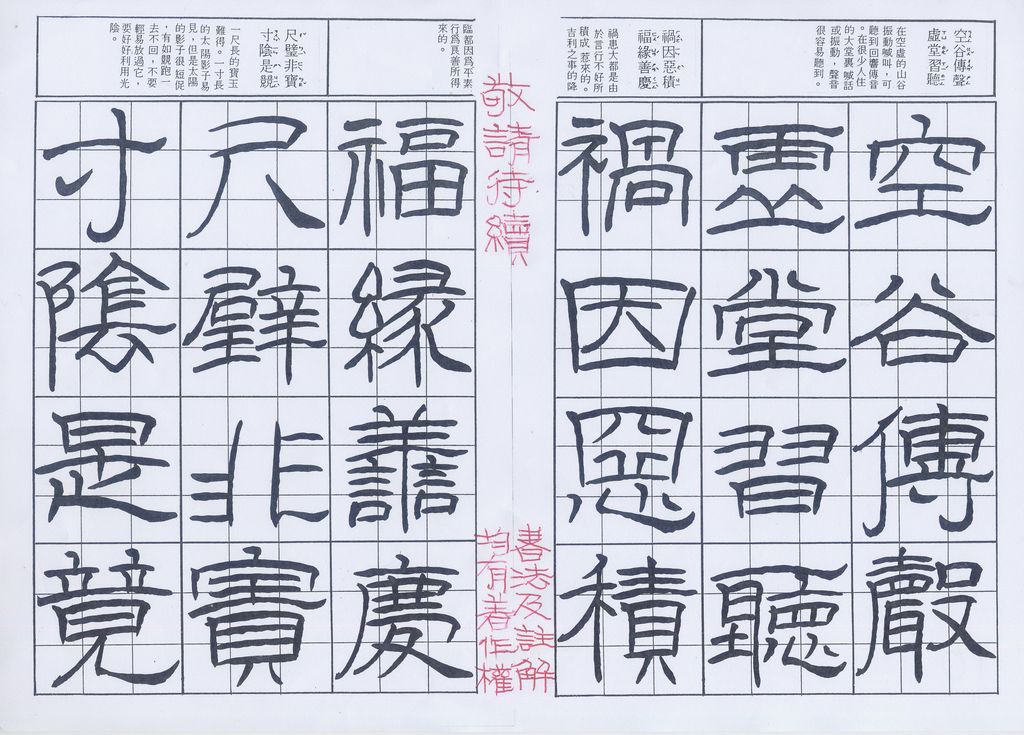 空谷傳聲
虛堂習聽
在空虛的山谷
振動喊叫，可
聽到回響傳音
。在很少人住
的大堂裏 喊話
或振動，聲音
很容易聽到。
禍因惡積
福緣善慶
禍患大都是由
於言行不好所
積成 惹來的。
吉利之事的降
臨都因爲平素
行爲良善所得
來的。
尺璧非寶
寸陰是競
一尺長的寶玉
難得。一寸長
的太陽影子易
見，但是太陽
的影子很短促
，有如競跑一
去不回，不要
輕易放過它，
要好好利用光
陰。
空谷傳聲
虛堂習聽
禍因惡積
敬請待續
書法及註解
均有著作權
福緣善慶
尺璧非寶
寸陰是競